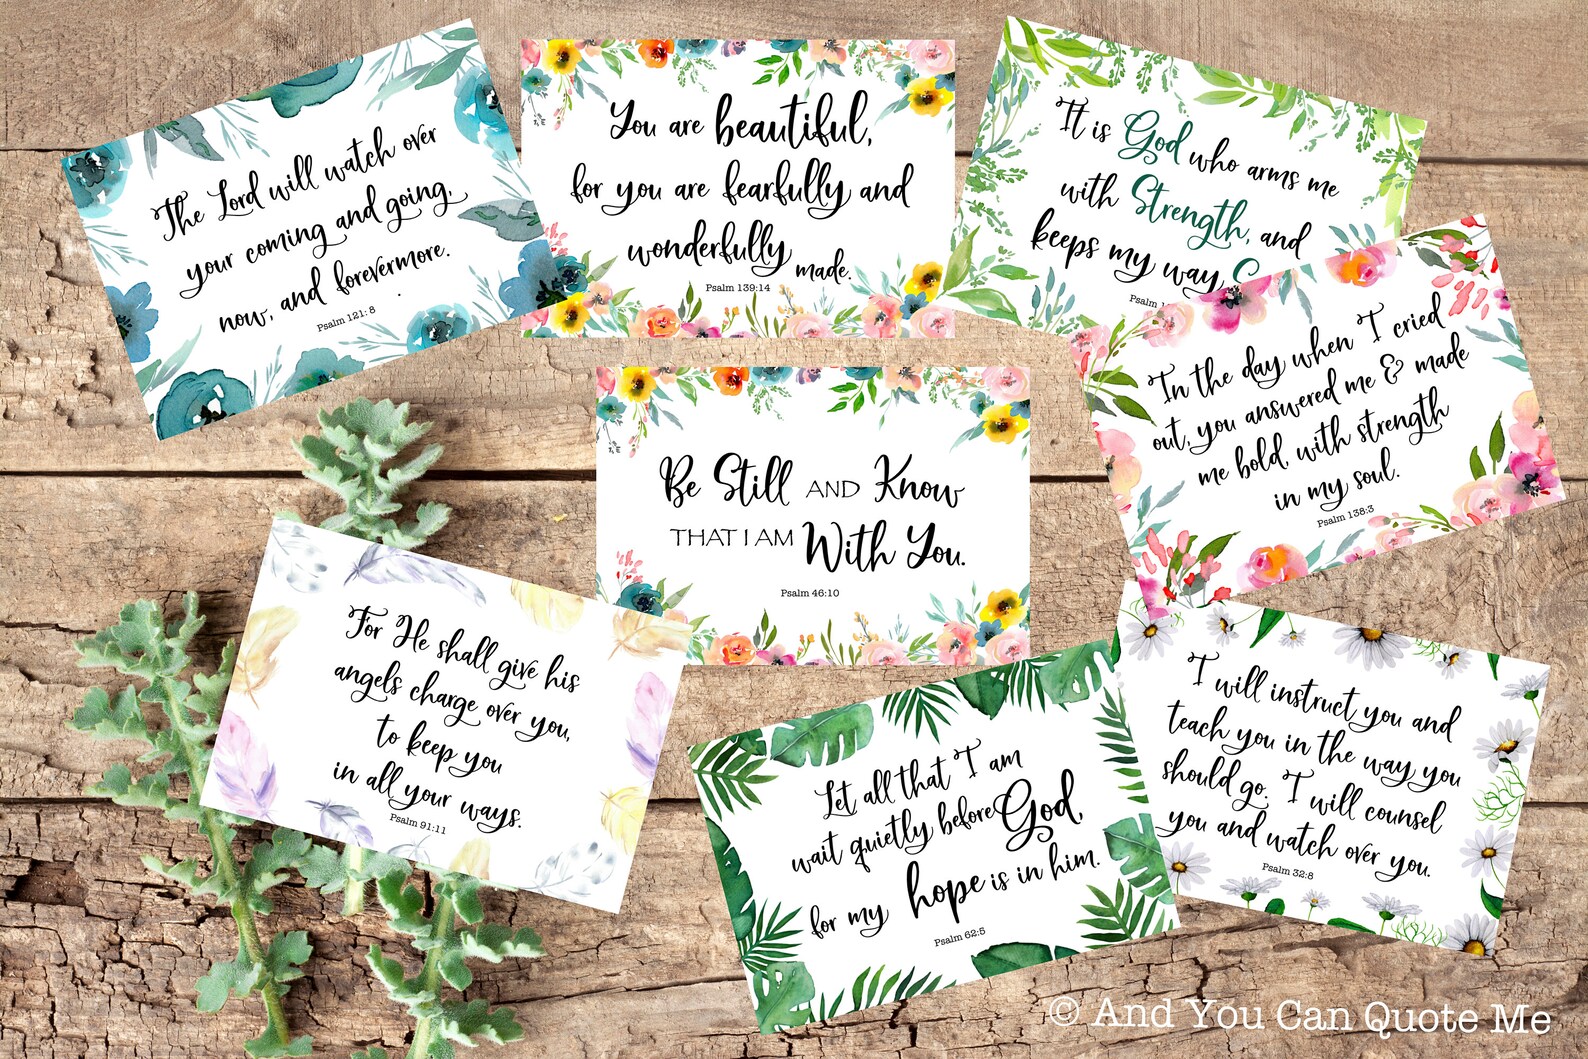 The Lord will watch over
your coming and going,
now, and forevermore.
Psalm 121: 8
You are beautiful,
for you are fearfully and
wonderfully made.
Psalm 139:14
It is God who arms me
with Strength, and
keeps my way
Psalm
In the day when I cried
out, you answered me & made
me bold, with strength
in my soul.
Psalm 138:3
Be Still AND Know
THAT I AM With You.
Psalm 46:10
For He shall give his
angels charge over you,
to keep you
in all your ways.
Psalm 91:11
Let all that I am
wait quietly before God,
for my hope is in him.
Psalm 62:5
I will instruct you and
teach you in the way you
should go; I will counsel
you and watch over you.
Psalm 32:8
© And You Can Quote Me